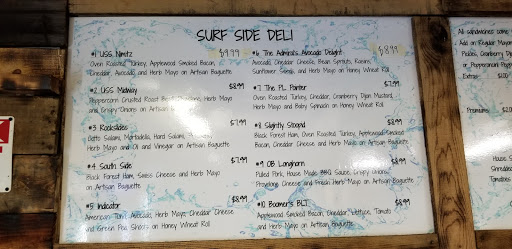 SURF SIDE DELI
#1 USS Nimitz $9.99
Oven Roasted Turkey, Applewood Smoked Bacon,
Cheddar, Avocado and Herb Mayo on Artisan Baguette
#2 USS Midway $8.99
Peppercorn Crusted Roast Beef, Herb Mayo
and Crispy Onions on Artisan
#3 Rockslides $7.99
Mortadella, Hard Salami,
Herb Mayo and Oil and Vinegar on Artisan Baguette
#4 South Side $7.99
Black Forest Ham, Swiss Cheese and Herb Mayo
on Artisan Baguette
#5 Indicator $8.99
American Tuna, Avocado, Herb Mayo, Cheddar Cheese
and Green Pea Shoots on Honey Wheat Roll
#6 The Admiral's Avocado Delight $8.99
Avocado, Cheddar Cheese, Bean Sprouts, Onions,
Sunflower Seeds, and Herb Mayo on Honey Wheat Roll
#7 The P.L. Pointer $7.99
Oven Roasted Turkey, Cheddar, Cranberry Dijon Mustard,
Herb Mayo and Baby Spinach on Honey Wheat Roll
#8 Slightly Stoopid $8.99
Black Forest Ham, Oven Roasted Turkey, Applewood Smoked
Bacon, Cheddar Cheese and Herb Mayo on Artisan Baguette
#9 OB Longhorn $8.99
Pulled Pork, House Made BBQ Sauce, Crispy Onions,
Provolone Cheese and Fresh Herb Mayo on Artisan Baguette
#10 Boomer's BLT $8.99
Applewood Smoked Bacon, Cheddar, Lettuce, Tomato
and Herb Mayo on Artisan Baguette
All sandwiches come
Add on Regular Mayo
Pickles, Cranberry Dijon
or Pepperoncini Pepp
Extras: $1.00
Premiums: $2.00
House
Shredded